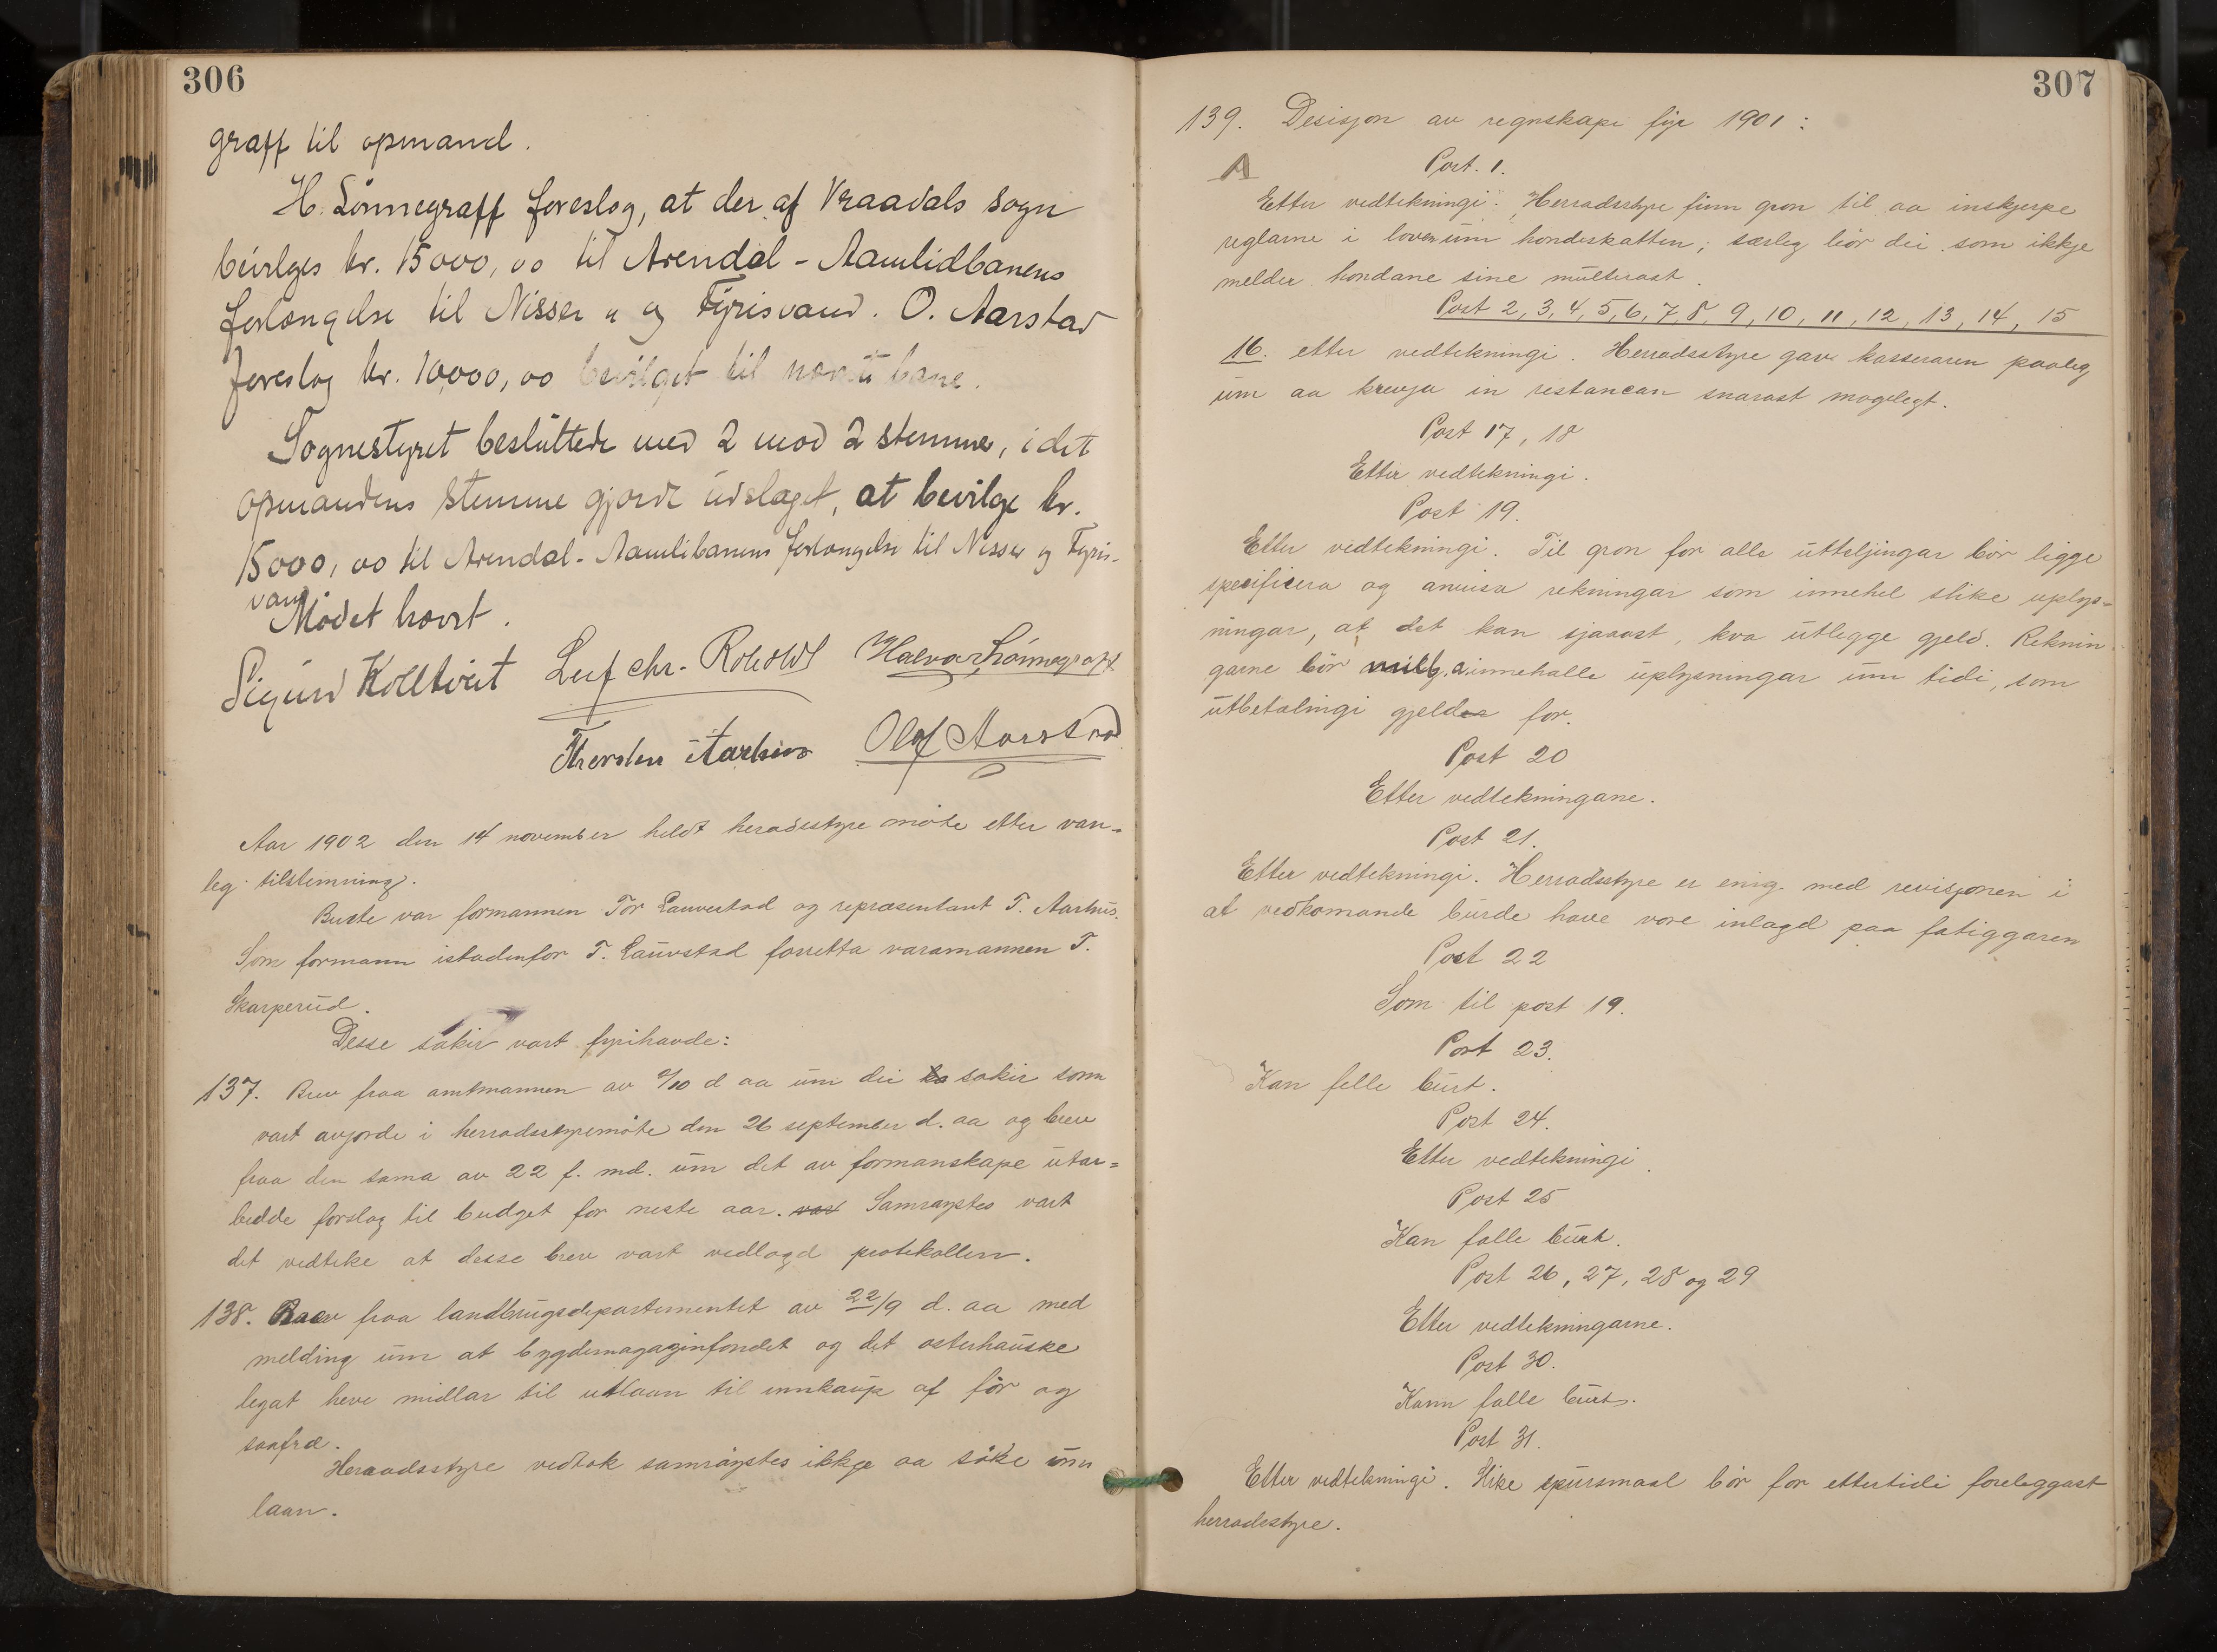 306
graff til opmand.
H. Lönnegraff foreslog, at der af Vraadals Sogn
bevilges kr. 15000,00 til Arendal - Aamlidbanens
forlængelse til Nisser " og Fyrisvand. O. Aarstad
foreslog kr. 10000,00 bevilget til nævnte bane.
Sognestyret besluttede med 2 mod 2 stemmer, idet
opmandens stemme gjorde udslaget, at bevilge kr.
15000,00 til Arendal - Aamlibanens forlængelse til Nisser og Fyris-
vand.
Mödet hævet.
Sigurd Kolltveit Leif chr. Roholdt Halvor Lönnegraff
Thorsten Aarhus Olaf Aarstad
Aar 1902 den 14 november heldt heradsstyre möte etter van-
leg tilstemning.
Burte var formannen Tor Lauvestad og repræsentant T. Aarhus.
Som formann istadenfor T. Lauvstad forretta varamannen T.
Skarperud.
Desse sakir vart fyrihavde:
137. Brev fraa amtmannen av /10 d aa um dei sakir som
vart avjorde i herradsstyremöte den 26 september d. aa og brev
fraa den sama av 22 f. md. um det av formanskape utar=
beidde forslag til budget for neste aar. var Samröystes vart
det vedteke at desse brev vart vedlagd protokollen.
138. Brev fraa landbrugsdepartementet av 22/9 d. aa med
melding um at bygdemagaginfondet og det osterhauske
legat heve midlar til utlaan til innkaup af för og
saafræ.
Heraadsstyre vedtok samröystes ikkje aa söke um
laan.
307
139. Desisjon av regnskapi fyr 1901:
A
Post. 1.
Etter vedtekningi. Herradsstyre finn gron til aa inskjerpe
reglarne i loven um hondeskatten; særleg bör dei som ikkje
melder hondane sine multerast.
Post 2, 3, 4, 5, 6, 7, 8, 9, 10, 11, 12, 13, 14, 15
16. etter vedtekningi. Herradsstyre gave kasseraren paaleg
um aa krevja in restancan snarast mogelegt.
Post 17, 18
Etter vedtekningi.
Post 19.
Etter vedtekningi. Til gron for alle utteljingar bör ligge
specificera og anvisa rekningar som innehel slike uplys=
ningar, at det kan sjaaast, kva utlegge gjeld. Reknin
garne bör innehalle uplysningar um tidi, som
utbetalingi gjelder for.
Post 20
Etter vedtekningane.
Post 21.
Etter vedtekningi. Herradsstyre er enig med revisjonen i
at vedkomande burde have vore inlagd paa fatiggaren
Post 22
Som til post 19.
Post 23.
Kan felle burt.
Post 24.
Etter vedtekningi.
Post 25
Kan falle burt.
Post 26, 27, 28 og 29
Etter vedtekningarne.
Post 30.
Kann falle burt.
Post 31.
Etter vedtekningi. Slike spursmaal bör for ettertidi foreleggast
herradsstyre.